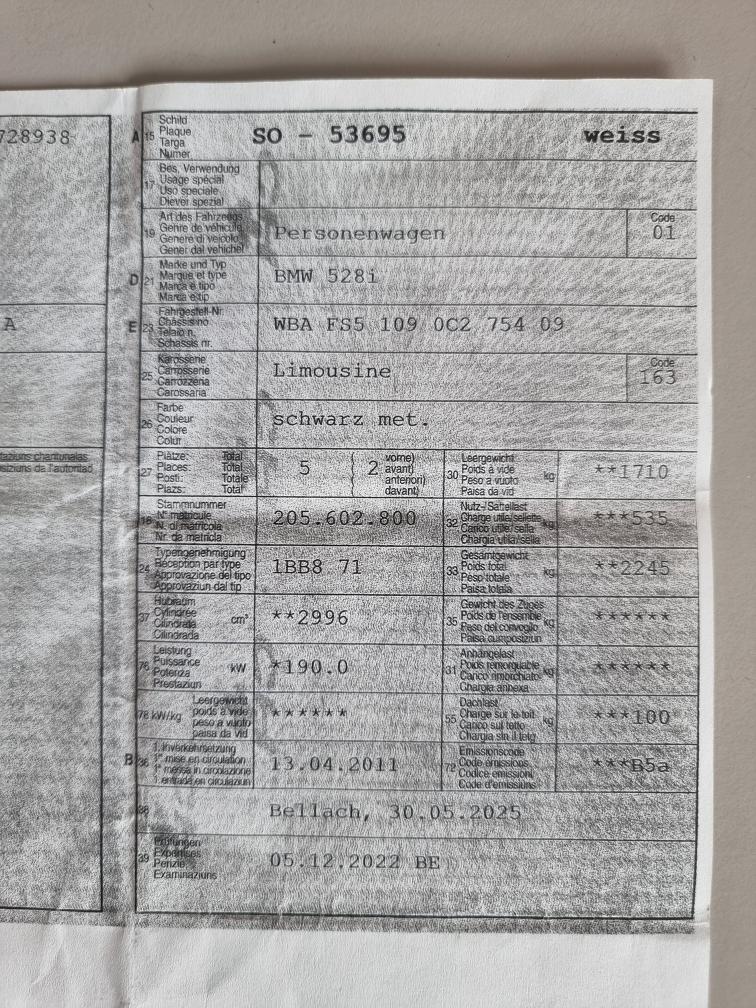 728938
A 15 Schild SO - 53695 weiss
Plaque
Targa
Numer
17 Bes. Verwendung
Usage spécial
Uso speciale
Diever spezial
19 Art des Fahrzeugs Personenwagen Code 01
Genre de véhicule
Genere di veicolo
Gener dal vehichel
D 21 Marke und Typ BMW 528i
Marque et type
Marca e tipo
Marca e tip
A
E 23 Fahrgestell-Nr. WBA FS5 109 0C2 754 09
Châssis no
Telaio n.
Schassis nr.
25 Karosserie Limousine Code 163
Carrosserie
Carrozzeria
Carossaria
26 Farbe schwarz met.
Couleur
Colore
Colur
taziuns chantunalas
siziuns da l'autoritad
27 Plätze: Total 5 ( 2 vorne)
Places: Total avant)
Posti: Totale anteriori)
Plazs: Total davant)
30 Leergewicht kg **1710
Poids à vide
Peso a vuoto
Paisa da vid
18 Stammnummer 205.602.800
N° matricule
N. di matricola
Nr. da matricla
32 Nutz-/Sattellast kg ***535
Charge utile/sellette
Carico utile/sella
Chargia utila/sella
24 Typengenehmigung 1BB8 71
Réception par type
Approvazione del tipo
Approvaziun dal tip
33 Gesamtgewicht kg **2245
Poids total
Peso totale
Paisa totala
37 Hubraum cm³ **2996
Cylindrée
Cilindrata
Cilindrada
35 Gewicht des Zuges kg ******
Poids de l'ensemble
Peso del convoglio
Paisa cumposiziun
76 Leistung kW *190.0
Puissance
Potenza
Prestaziun
31 Anhängelast kg ******
Poids remorquable
Carico rimorchiato
Chargia annexa
78 kW/kg Leergewicht ******
poids à vide
peso a vuoto
paisa da vid
55 Dachlast kg ***100
Charge sur le toit
Carico sul tetto
Chargia sin il tetg
B 36 1. Inverkehrsetzung 13.04.2011
1re mise en circulation
1a messa in circolazione
1. entrada en circulaziun
72 Emissionscode ***B5a
Code émissions
Codice emissioni
Code d'emissiuns
38 Bellach, 30.05.2025
39 Prüfungen 05.12.2022 BE
Expertises
Perizie
Examinaziuns